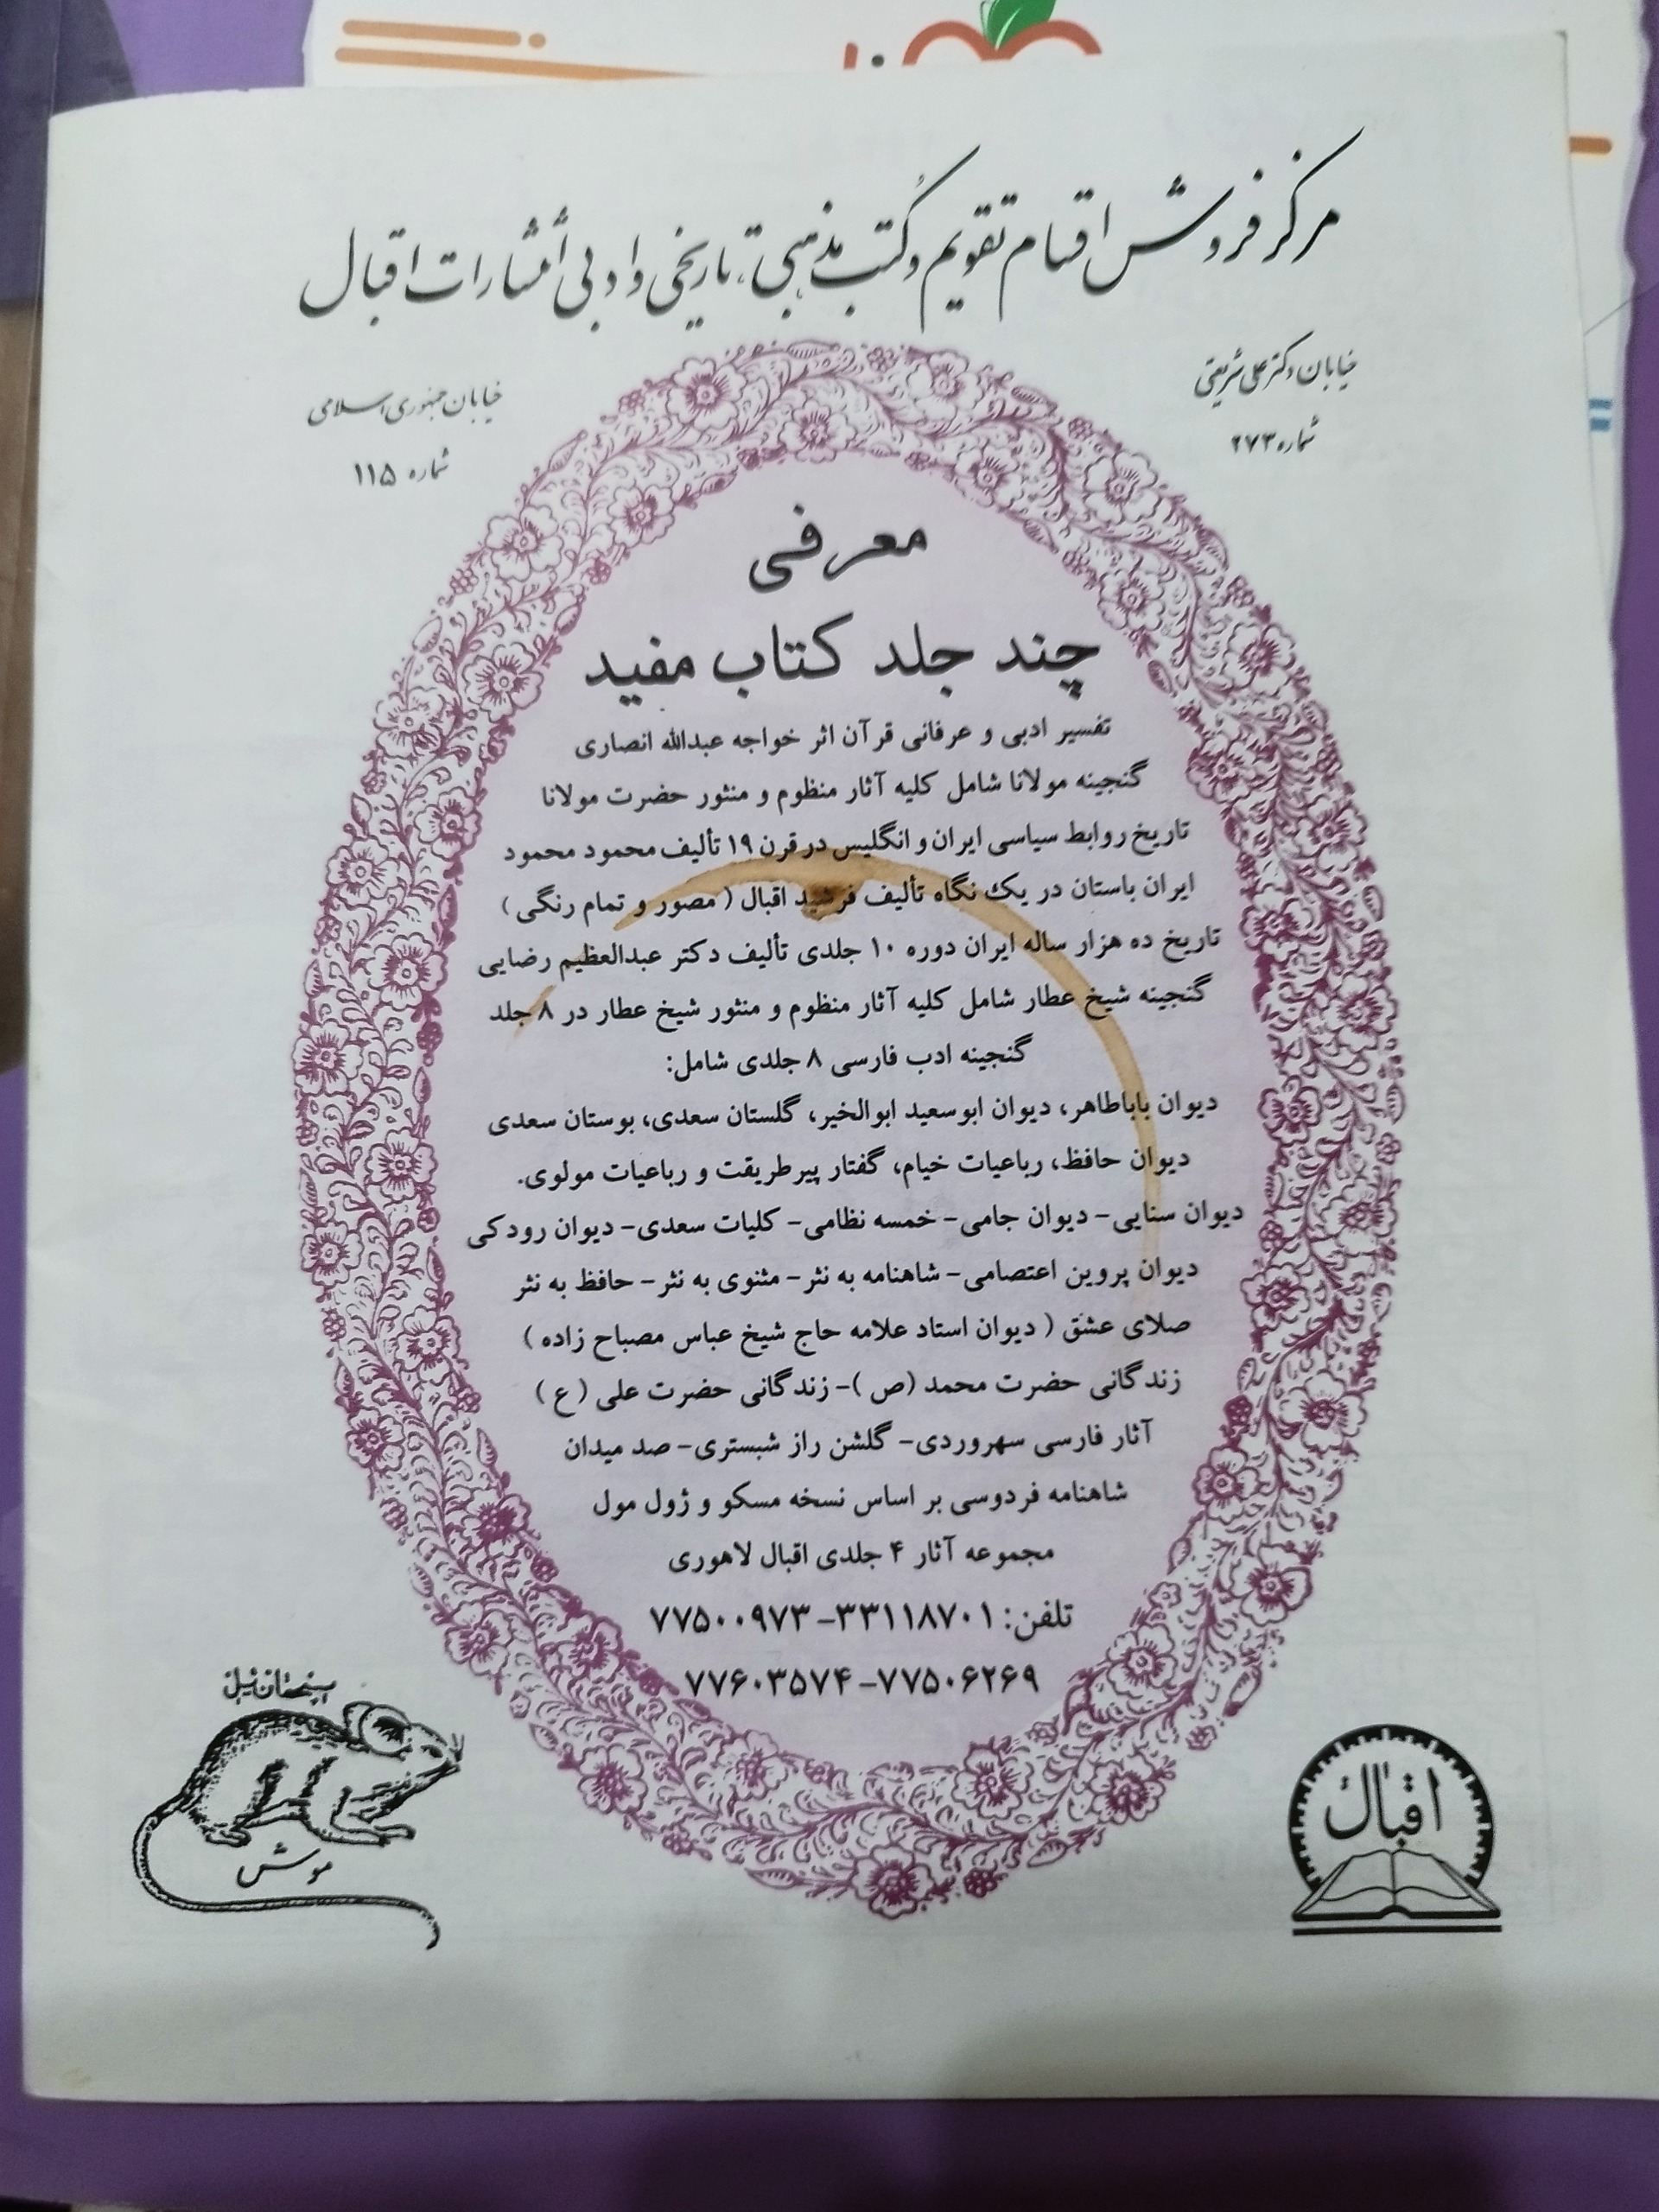 مرکز فروش اقسام تقویم و کتب مذهبی، تاریخی و ادبی انتشارات اقبال
خیابان دکتر علی شریعتی
شماره ۲۷۳
خیابان جمهوری اسلامی
شماره ۱۱۵
معرفی
چند جلد کتاب مفید
تفسیر ادبی و عرفانی قرآن اثر خواجه عبدالله انصاری
گنجینه مولانا شامل کلیه آثار منظوم و منثور حضرت مولانا
تاریخ روابط سیاسی ایران و انگلیس در قرن ۱۹ تألیف محمود محمود
ایران باستان در یک نگاه تألیف فرشید اقبال ( مصور و تمام رنگی )
تاریخ ده هزار ساله ایران دوره ۱۰ جلدی تألیف دکتر عبدالعظیم رضایی
گنجینه شیخ عطار شامل کلیه آثار منظوم و منثور شیخ عطار در ۸ جلد
گنجینه ادب فارسی ۸ جلدی شامل:
دیوان باباطاهر، دیوان ابوسعید ابوالخیر، گلستان سعدی، بوستان سعدی
دیوان حافظ، رباعیات خیام، گفتار پیر طریقت و رباعیات مولوی.
دیوان سنایی- دیوان جامی- خمسه نظامی- کلیات سعدی- دیوان رودکی
دیوان پروین اعتصامی- شاهنامه به نثر- مثنوی به نثر- حافظ به نثر
صلای عشق ( دیوان استاد علامه حاج شیخ عباس مصباح زاده )
زندگانی حضرت محمد (ص )- زندگانی حضرت علی ( ع )
آثار فارسی سهروردی- گلشن راز شبستری- صد میدان
شاهنامه فردوسی بر اساس نسخه مسکو و ژول مول
مجموعه آثار ۴ جلدی اقبال لاهوری
تلفن: ۳۳۱۱۸۷۰۱-۷۷۵۰۰۹۷۳
۷۷۵۰۶۲۶۹-۷۷۶۰۳۵۷۴
موش
اقبال